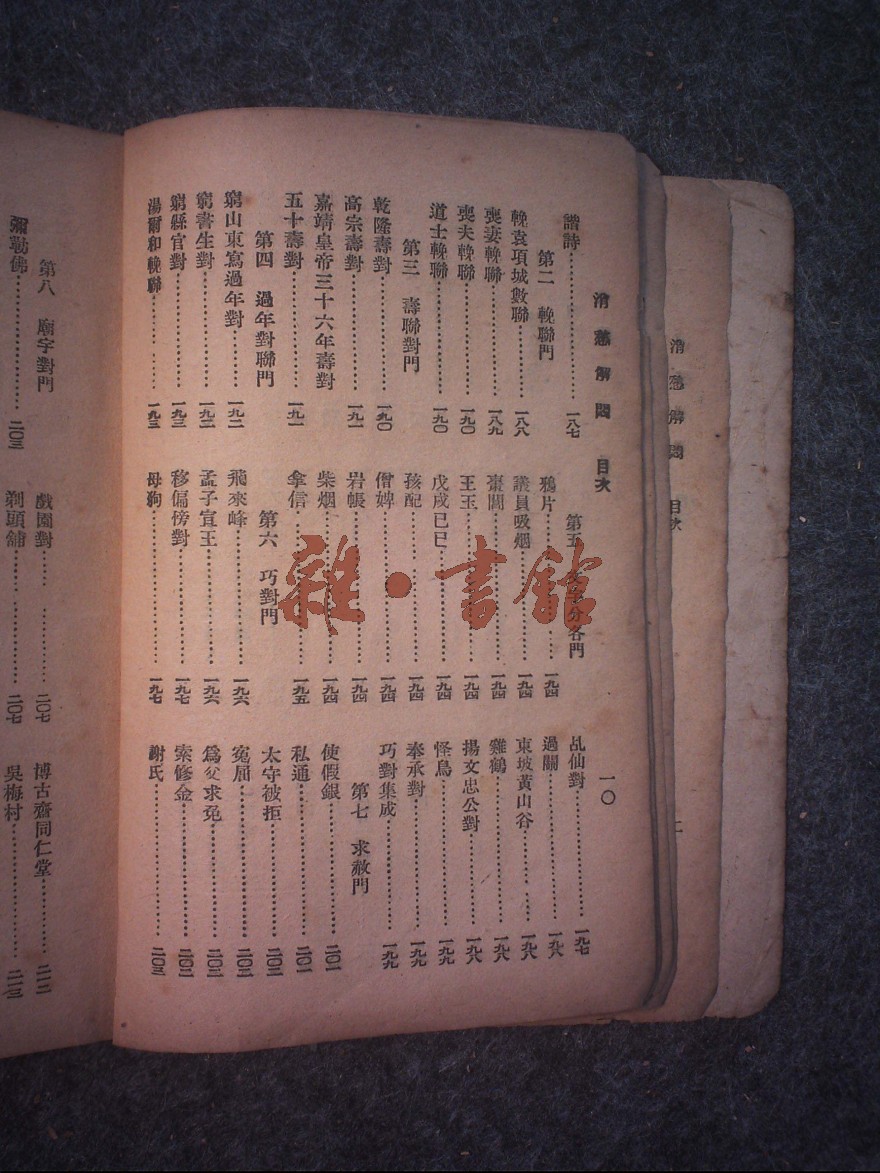 消愁解悶　目次
一〇
諧詩……一八七
第二　輓聯門
輓袁項城數聯……一八八
喪妻輓聯……一八九
喪夫輓聯……一九〇
道士輓聯……一九〇
第三　壽聯對門
乾隆壽對……一九〇
高宗壽對……一九一
嘉靖皇帝三十六年壽對
五十壽對……一九一
第四　過年對聯門
窮山東寫過年對……一九二
窮書生對……一九二
窮縣官對……一九三
湯爾和輓聯……一九三
第五　分各門
鴉片……一九四
議員吸烟……一九四
棗閙……一九四
王玉……一九四
戊戌己巳……一九四
孩配……一九四
僧婢……一九四
岩帳……一九四
柴烟……一九四
拿信……一九五
第六　巧對門
飛來峰……一九六
孟子宣王……一九六
移偏傍對……一九七
母狗……一九七
乩仙對……一九七
過關……一九八
東坡黃山谷……一九八
雞鶴……一九八
揚文忠公對……一九八
怪鳥……一九九
奉承對……一九九
巧對集成……一九九
第七　求赦門
使假銀……二〇一
私通……二〇一
太守被拒……二〇二
冤屈……二〇二
爲父求免……二〇二
索修金……二〇二
謝氏……二〇三
第八　廟宇對門
彌勒佛……二〇三
戲園對……二〇七
剃頭舖……二〇七
博古齋同仁堂……二一二
吳梅村……二一三
消愁解悶　目次
雜·書館